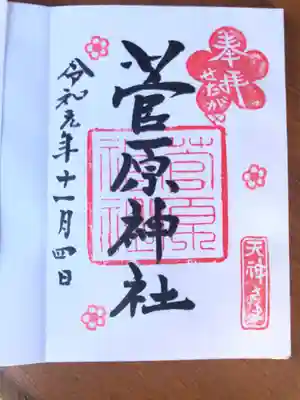 奉拝
せたがや
菅原神社
菅原
神社
天神さま
令和元年十一月四日